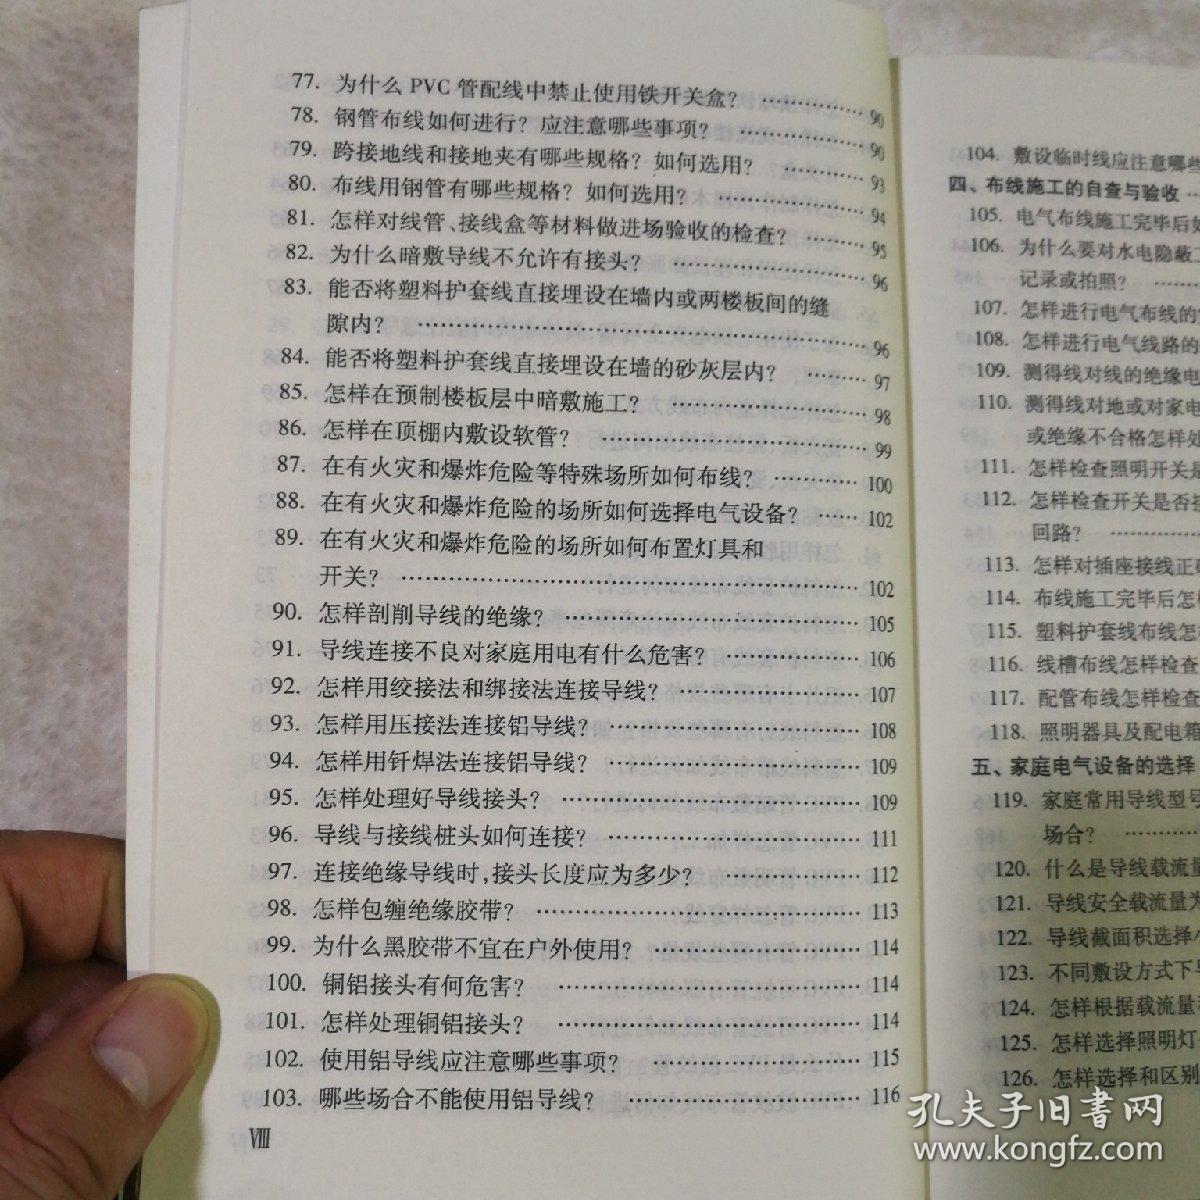 77. 为什么 PVC 管配线中禁止使用铁开关盒? ……………… 90
78. 钢管布线如何进行? 应注意哪些事项? ……………… 90
79. 跨接地线和接地夹有哪些规格? 如何选用? ………… 93
80. 布线用钢管有哪些规格? 如何选用? ……………… 94
81. 怎样对线管、接线盒等材料做进场验收的检查? ……… 95
82. 为什么暗敷导线不允许有接头? ……………… 96
83. 能否将塑料护套线直接埋设在墙内或两楼板间的缝
隙内? ……………… 96
84. 能否将塑料护套线直接埋设在墙的砂灰层内? ……… 97
85. 怎样在预制楼板层中暗敷施工? ……………… 98
86. 怎样在顶棚内敷设软管? ……………… 99
87. 在有火灾和爆炸危险等特殊场所如何布线? ………… 100
88. 在有火灾和爆炸危险的场所如何选择电气设备? …… 102
89. 在有火灾和爆炸危险的场所如何布置灯具和
开关? ……………… 102
90. 怎样剖削导线的绝缘? ……………… 105
91. 导线连接不良对家庭用电有什么危害? ……………… 106
92. 怎样用绞接法和绑接法连接导线? ……………… 107
93. 怎样用压接法连接铝导线? ……………… 108
94. 怎样用钎焊法连接铝导线? ……………… 109
95. 怎样处理好导线接头? ……………… 109
96. 导线与接线桩头如何连接? ……………… 111
97. 连接绝缘导线时,接头长度应为多少? ……………… 112
98. 怎样包缠绝缘胶带? ……………… 113
99. 为什么黑胶带不宜在户外使用? ……………… 114
100. 铜铝接头有何危害? ……………… 114
101. 怎样处理铜铝接头? ……………… 114
102. 使用铝导线应注意哪些事项? ……………… 115
103. 哪些场合不能使用铝导线? ……………… 116
Ⅷ
104. 敷设临时线应注意哪些
四、布线施工的自查与验收 …
105. 电气布线施工完毕后如
106. 为什么要对水电隐蔽工
记录或拍照? ………
107. 怎样进行电气布线的
108. 怎样进行电气线路的
109. 测得线对线的绝缘电
110. 测得线对地或对家电
或绝缘不合格怎样处
111. 怎样检查照明开关是
112. 怎样检查开关是否接
回路? ………
113. 怎样对插座接线正确
114. 布线施工完毕后怎样
115. 塑料护套线布线怎样
116. 线槽布线怎样检查
117. 配管布线怎样检查
118. 照明器具及配电箱
五、家庭电气设备的选择
119. 家庭常用导线型号
场合? ………
120. 什么是导线载流量
121. 导线安全载流量为
122. 导线截面积选择
123. 不同敷设方式下
124. 怎样根据载流量
125. 怎样选择照明灯
126. 怎样选择和区别
孔夫子旧书网
www.kongfz.com